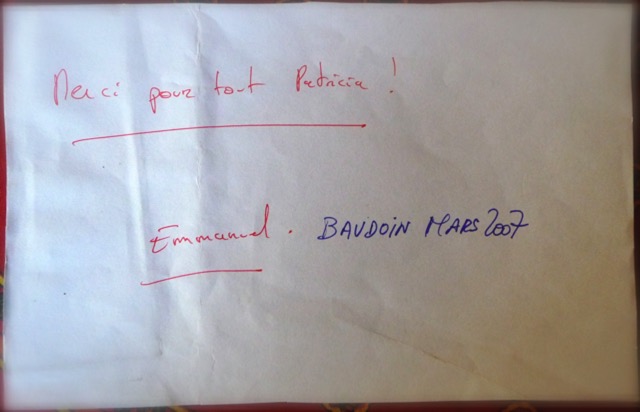 Merci pour tout Patricia !
Emmanuel. BAUDOIN MARS 2007